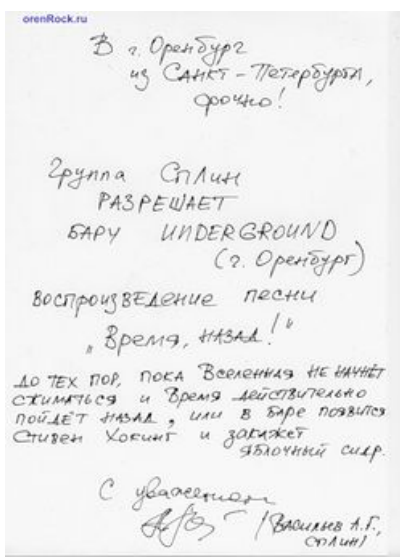 orenRock.ru
В г. Оренбург
из Санкт-Петербурга,
срочно!
Группа Сплин
РАЗРЕШАЕТ
БАРУ UNDERGROUND
(г. Оренбург)
воспроизведение песни
„Время, назад!"
До тех пор, пока Вселенная не начнёт
сжиматься и Время действительно
пойдёт назад, или в баре появится
Стивен Хокинг и закажет
яблочный сидр.
С уважением
/Васильев А.Г.,
Сплин/